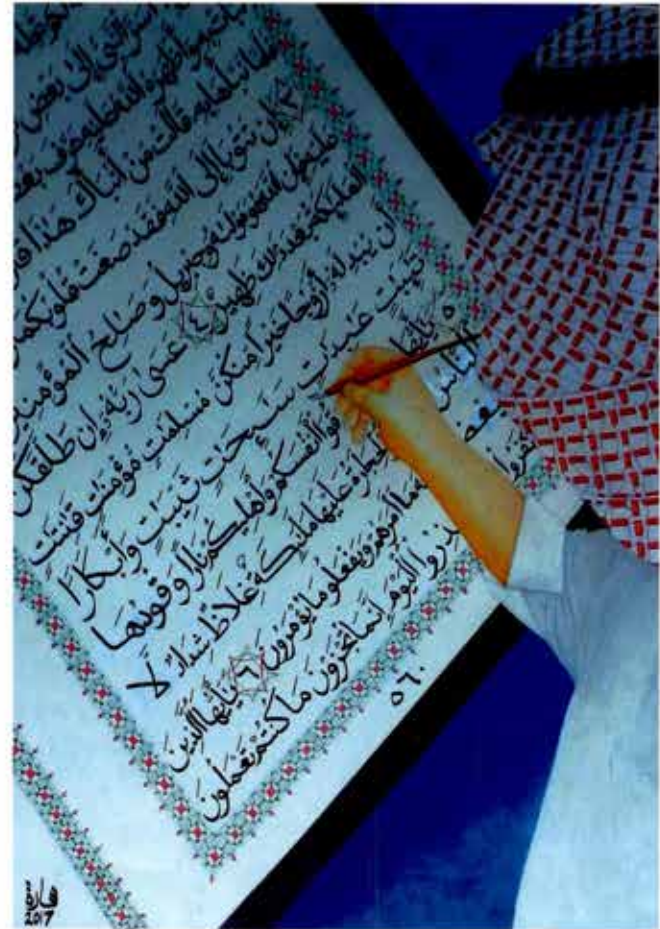 أسر النبي إلى بعض
نبأت به وأظهره الله عليه عرف بعضه
فلما نبأها به قالت من أنبأك هذا قال
٣ إن تتوبا إلى الله فقد صغت قلوبكما
عليه فإن الله هو مولىه وجبريل وصلح المؤمنين
والملئكة بعد ذلك ظهير ٤ عسى ربه إن طلقكن
أن يبدله أزوجا خيرا منكن مسلمت مؤمنت قنتت
تئبت عبدت سئحت ثيبت وأبكارا
٥ يأيها قوا أنفسكم وأهليكم نارا وقودها
الناس لحجارة عليها ملئكة غلاظ شداد لا
يعص ما أمرهم ويفعلون ما يؤمرون ٦ يأيها الذين
كفروا ذروا اليوم إنما تجزون ما كنتم تعملون
٥٦٠
2017